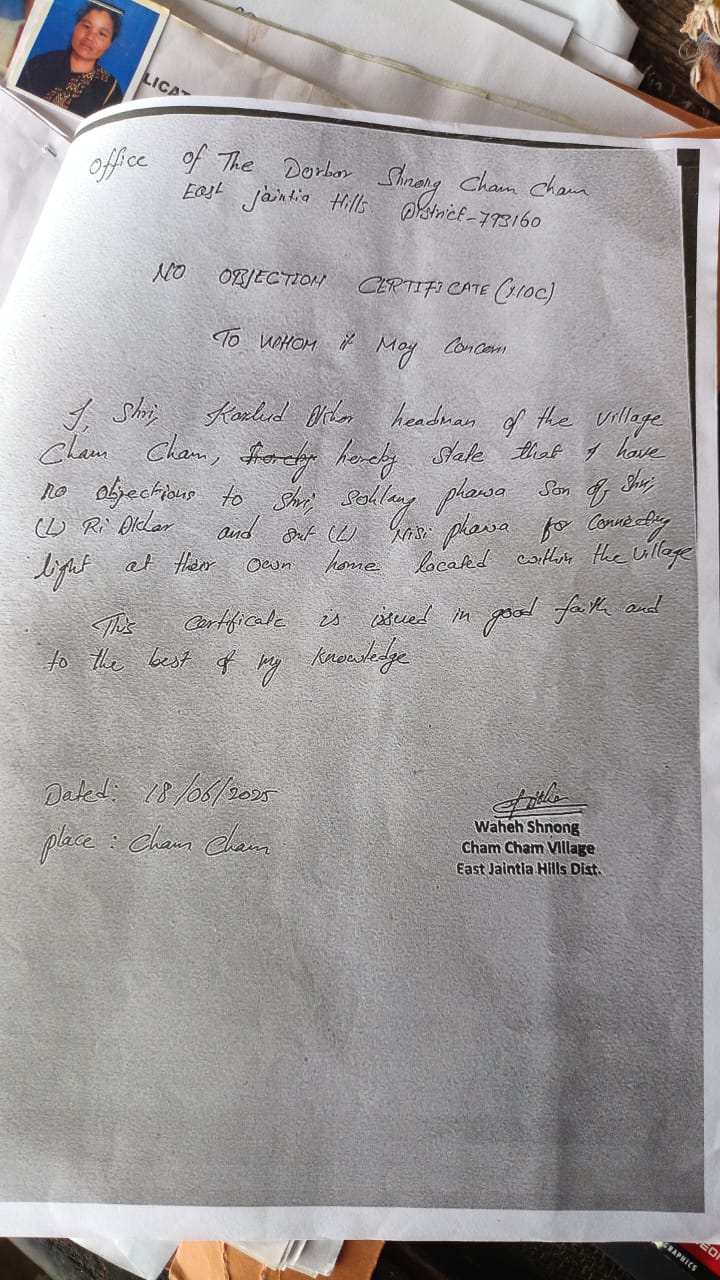 LICAT
Office of The Dorbar Shnong Cham Cham
East Jaintia Hills District-793160
NO OBJECTION CERTIFICATE (NOC)
To WHOM it May Concern
I, Shri, Korlud Dkhar headman of the village
Cham Cham, hereby state that I have
no objections to Shri, Sohlang phawa Son of Shri,
(L) Ri Dkhar and smt (L) Nisi phawa for Connecting
light at their own home located within the village
This certificate is issued in good faith and
to the best of my knowledge
Dated: 18/06/2025
place : Cham Cham
Waheh Shnong
Cham Cham Village
East Jaintia Hills Dist.
GRAPHICS